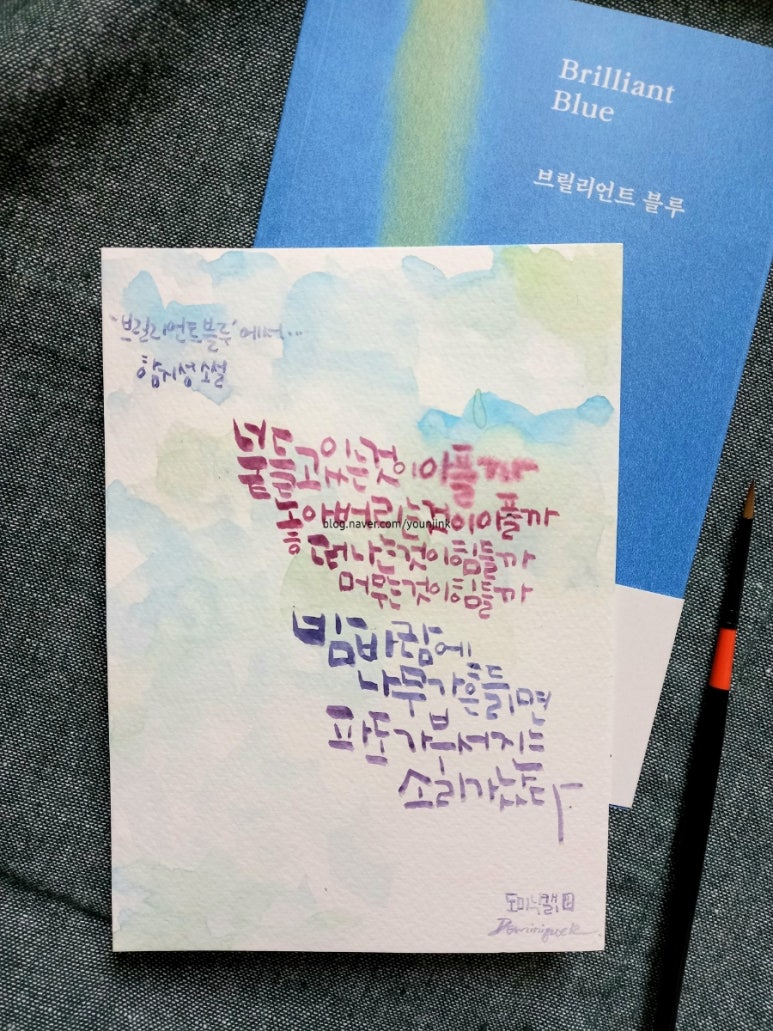 Brilliant
Blue
브릴리언트 블루
'브릴리언트블루'에서...
함지성 소설
붙들고있는것이아플까
놓아버리는것이아플까
떠나는것이힘들까
머무는것이힘들까
밤바람에
나무가흔들리면
파도가부서지는
소리가났다
blog.naver.com/younjink
도미니크
Dominique